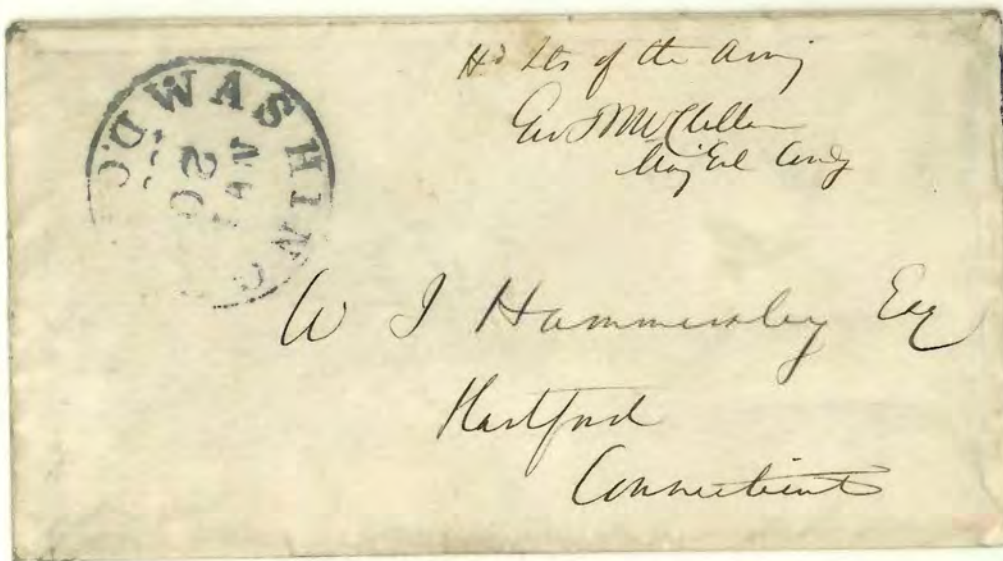 WASHING
D.C.
JAN
20
Hd Qts of the Army
Geo B McClellan
Maj Genl Comdg
W J Hammersley Esq
Hartford
Connecticut